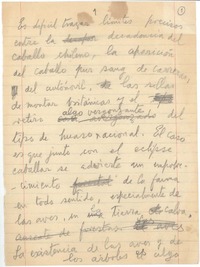 Es difícil trazar límites precisos
entre la decadencia del
caballo chileno, la aparición
del caballo pura sang de carreras,
del automóvil, de las sillas
de montar británicas y el
algo vergonzante
retiro del
tipo de huaso nacional. El caso
es que junto con el eclipse
caballar se advierte un empobre-
cimiento de la fauna
en todo sentido, especialmente de
las aves, en una tierra
La existencia de las aves y de
los árboles es algo